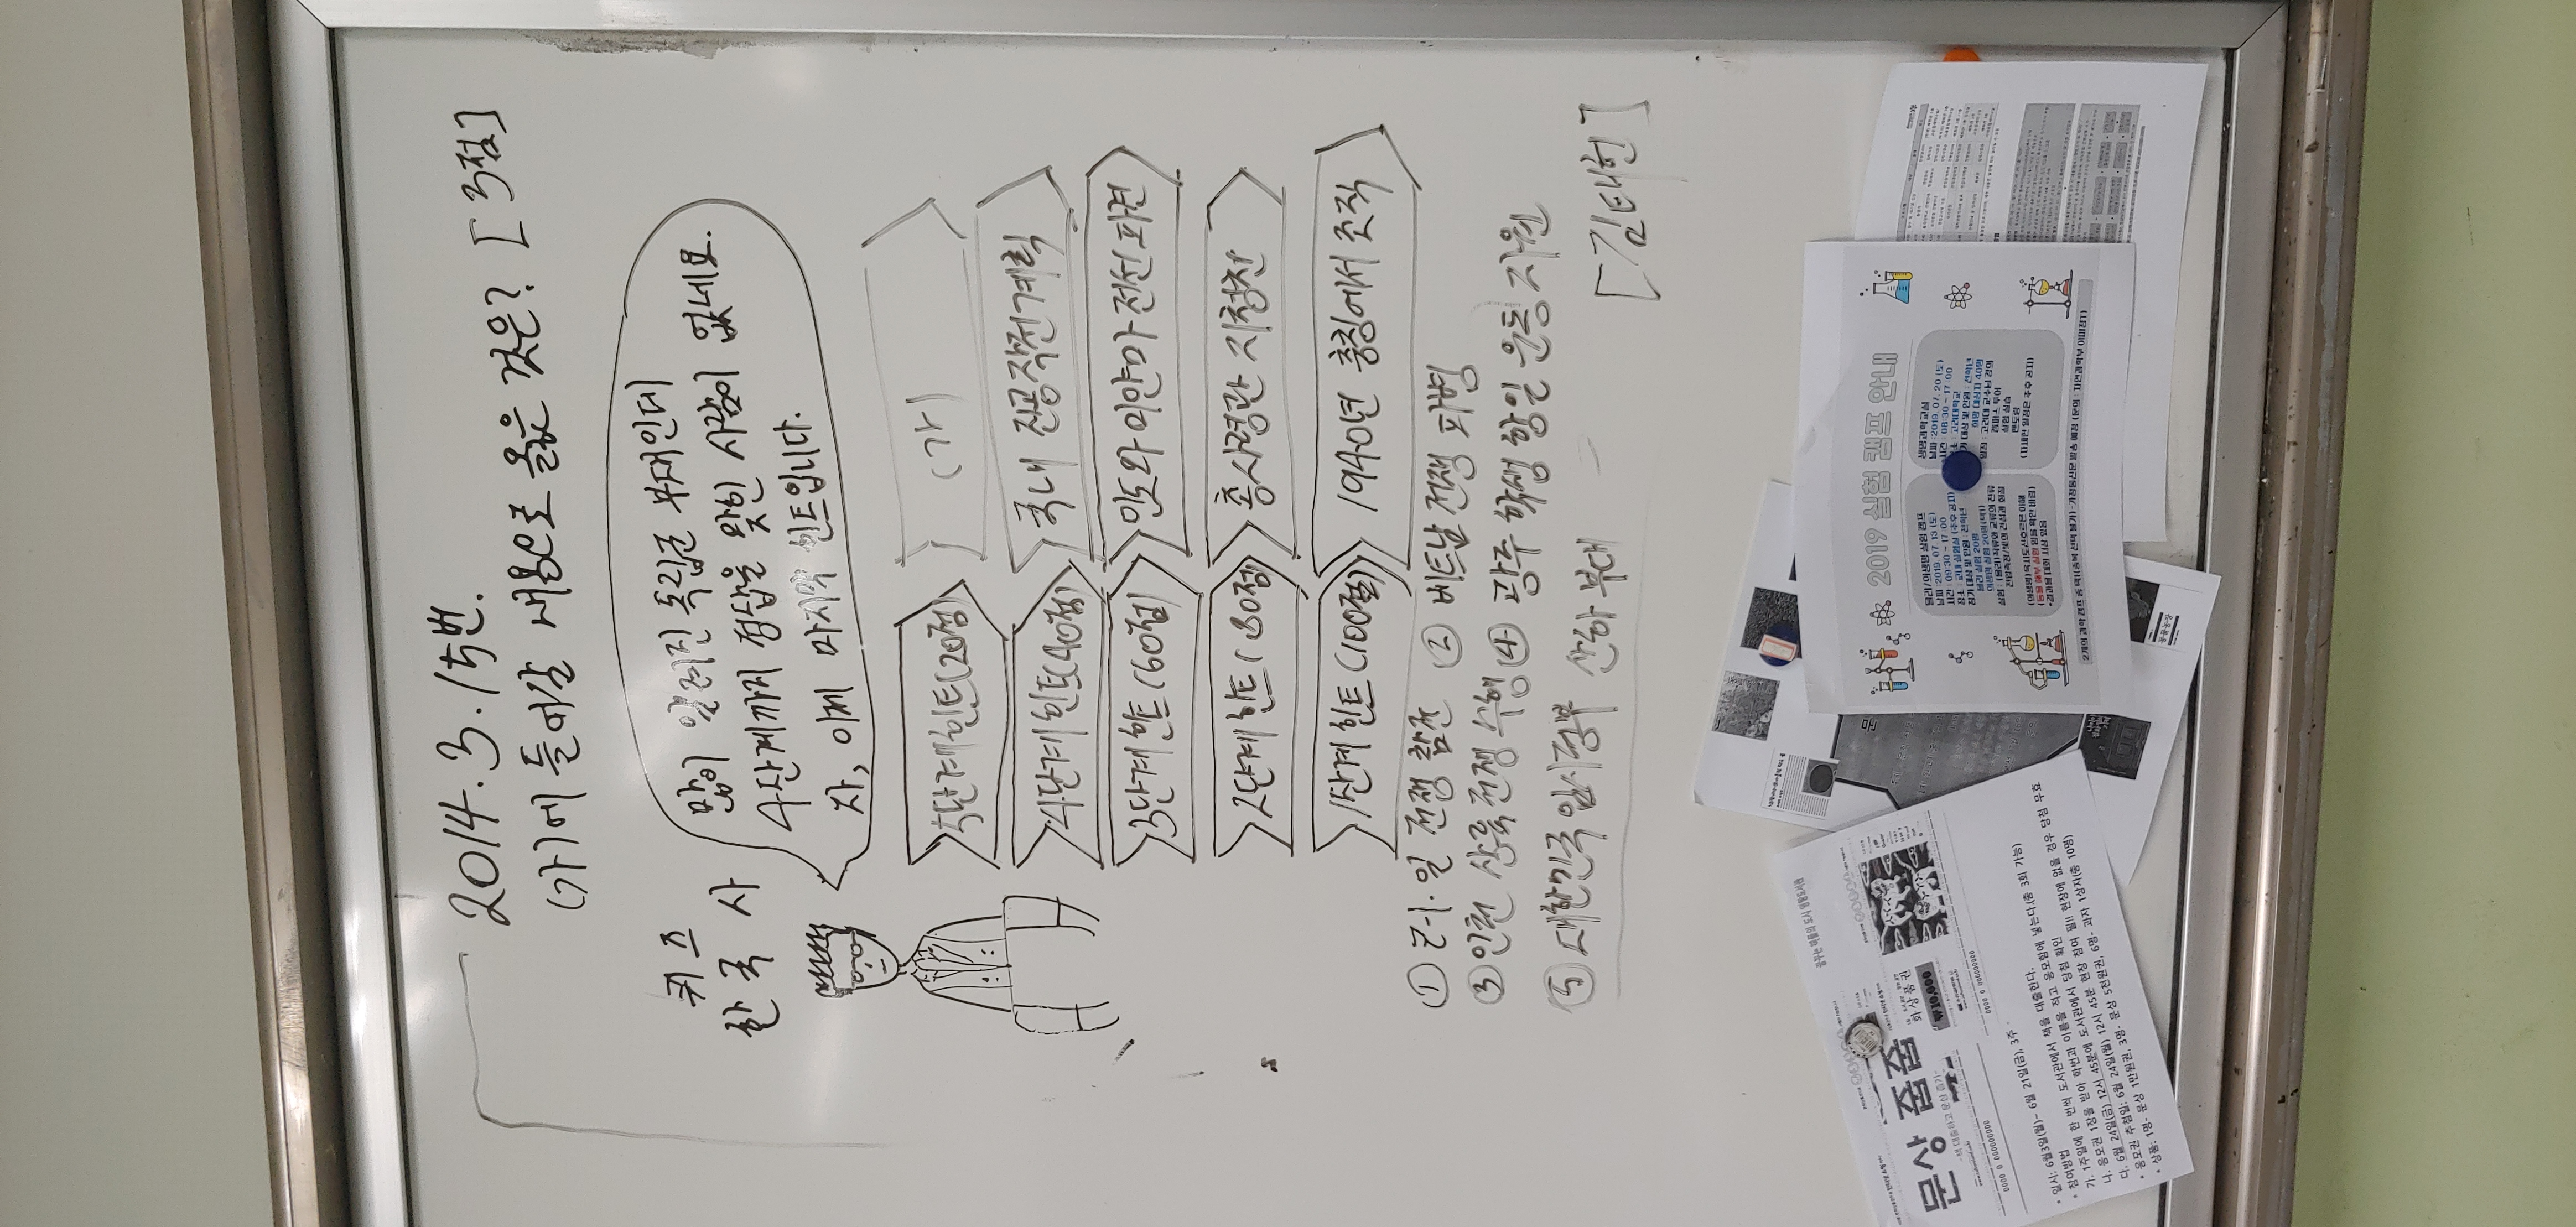 2014.3.15번.
(가)에 들어갈 내용으로 옳은 것은? [3점]
퀴즈
한국사
많이 알려진 독립군 부대인데
4단계까지 정답을 맞힌 사람이 없네요.
자, 이제 마지막 힌트입니다.
5단계 힌트(20점) (가)
4단계 힌트(40점) 국내 진공작전계획
3단계 힌트(60점) 인도와 미얀마 전선 파견
2단계 힌트(80점) 총사령관 지청천
1단계 힌트(100점) 1940년 충칭에서 조직
① 러·일 전쟁 참전 ② 베트남 전쟁 파병
③ 인천 상륙 전쟁 수행 ④ 광주 학생 항일 운동 지원
⑤ 대한민국 임시정부 산하 부대
[김태헌]
꿈꾸는 책들의 도시 영랑도서관
문상 줍줍
-책 대출하고 문상 줍기-
화상품권
₩10,000
0000 0 000000000
0000 0 000000000
* 일시: 6월3일(월)~ 6월 21일(금), 3주
* 참여방법
가. 1주일에 한 번씩 도서관에서 책을 대출한다.
나. 응모권 1장을 받아 학번과 이름을 적고 응모함에 넣는다.(총 3회 가능)
다. 6월 24일(금) 12시 45분에 도서관에서 당첨 확인
* 응모권 추첨일: 6월 24일(월) 12시 45분 현장 참여 필!! 현장에 없을 경우 당첨 무효
* 상품: 1명- 문상 1만원권, 3명- 문상 5천원권, 6명- 과자 1상자(총 10명)
동물농장
2019 실험 캠프 안내
물리/의생명 실험 캠프
날짜 :2019. 07. 13 (토)
시간 : 09:30 ~ 17:00
장소 : 교내 실험실 (추후 공지)
참가 대상 및 인원 : 전학년
물리 실험 20명
의생명 실험 20명(택1)
실험 : (물리)직류와 교류의 전류
전압측정/빛의 간섭과 회절
(의생명)옥시토신호르몬 이해
(동물 해부 실험 있음 확인 바람)
*결과물 대회 시상 있음
생명과학교실
날짜 :2019. 07. 20 (토)
시간 : 08:30 ~ 17:00
장소 : 고려대학교
참가 대상 및 인원 : 전학년
희망 대상자 40명
일정 : 고려대 교수님 강의
캠퍼스 투어
실험 실습
멘토링
(자세한 일정은 추후 공지)
2개의 과학 캠프 중 택1(중복 선택 불가) -가정통신문 발송 예정 (문의 : 자연과학부 이미정T)